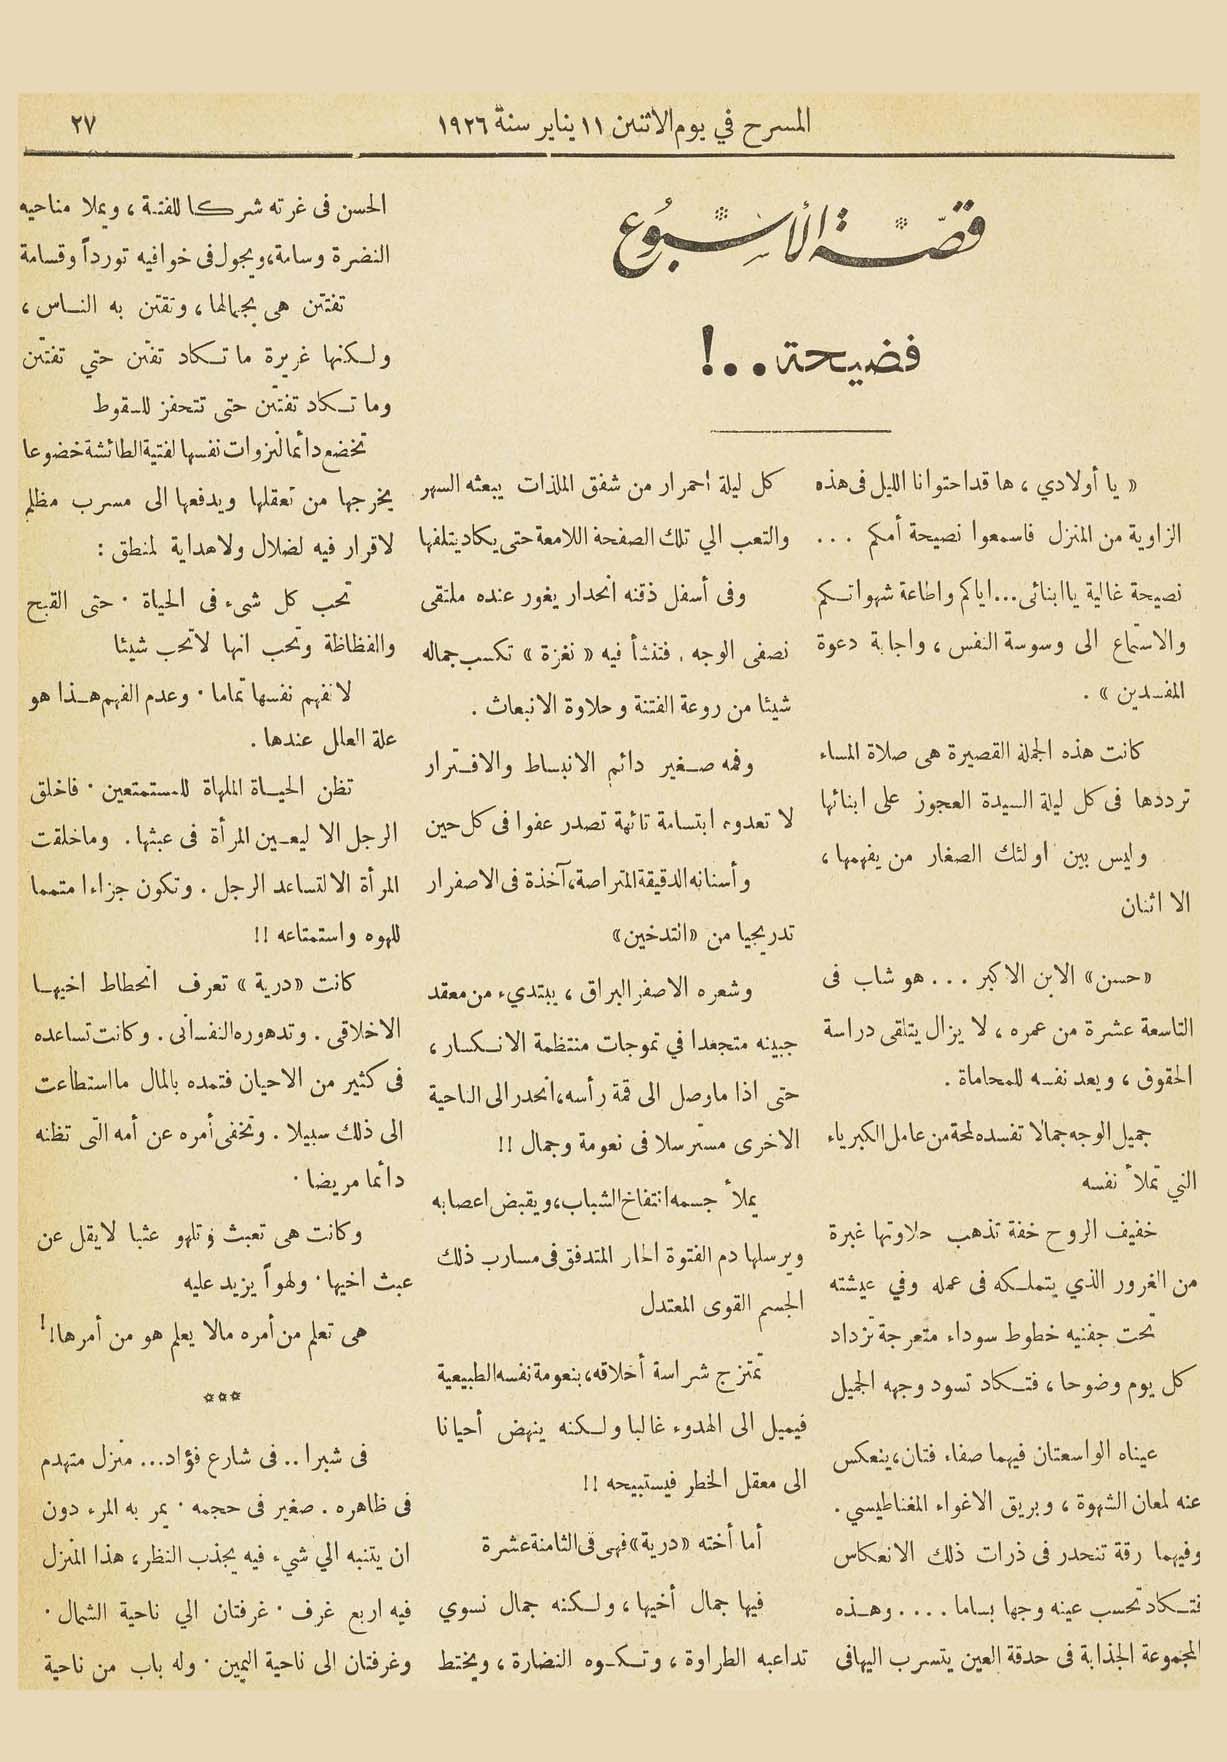 المسرح في يوم الاثنين ١١ يناير سنة ١٩٢٦
٢٧
قصة الأسبوع
فضيحة ..!
« يا أولادي ، ها قد احتوانا الليل فى هذه
الزاوية من المنزل فاسمعوا نصيحة أمكم ...
نصيحة غالية يا ابنائى... اياكم واطاعة شهواتكم
والاستماع الى وسوسة النفس ، واجابة دعوة
المفسدين » .
كانت هذه الجملة القصيرة هى صلاة المساء
ترددها فى كل ليلة السيدة العجوز على ابنائها
وليس بين اولئك الصغار من يفهمها ،
الا اثنان
«حسن» الابن الاكبر ... هو شاب فى
التاسعة عشرة من عمره ، لا يزال يتلقى دراسة
الحقوق ، ويعد نفسه للمحاماة .
جميل الوجه جمالا تفسده لمحة من عامل الكبرياء
التي تملأ نفسه
خفيف الروح خفة تذهب حلاوتها غبرة
من الغرور الذي يتملكه فى عمله وفي عيشته
تحت جفنيه خطوط سوداء متعرجة تزداد
كل يوم وضوحا ، فتكاد تسود وجهه الجميل
عيناه الواسعتان فيهما صفاء فتان ، ينعكس
عنه لمعان الشهوة ، وبريق الاغواء المغناطيسي .
وفيهما رقة تنحدر فى ذرات ذلك الانعكاس
فتكاد تحسب عينه وجها بساما .... وهذه
المجموعة الجذابة فى حدقة العين يتسرب اليها فى
كل ليلة احمرار من شفق الملذات يبعثه السهر
والتعب الي تلك الصفحة اللامعة حتى يكاد يتلفها
وفى أسفل ذقنه انحدار يغور عنده ملتقى
نصفى الوجه . فتنشأ فيه « نغزة » تكسب جماله
شيئا من روعة الفتنة وحلاوة الانبعاث .
وفمه صغير دائم الانبساط والافترار
لا تعدوه ابتسامة تائهة تصدر عفوا فى كل حين
وأسنانه الدقيقة المتراصة ، آخذة فى الاصفرار
تدريجيا من «التدخين»
وشعره الاصفر البراق ، يبتديء من معقد
جبينه متجعدا في تموجات منتظمة الانكسار ،
حتى اذا ما وصل الى قمة رأسه ، انحدر الى الناحية
الاخرى مسترسلا فى نعومة وجمال !!
يملأ جسمه انتفاخ الشباب ، ويقبض اعصابه
ويرسلها دم الفتوة الحار المتدفق فى مسارب ذلك
الجسم القوى المعتدل
تمتزج شراسة أخلاقه ، بنعومة نفسه الطبيعية
فيميل الى الهدوء غالبا ولكنه ينهض أحيانا
الى معقل الخطر فيستبيحه !!
أما أخته «درية» فهى فى الثامنة عشرة
فيها جمال أخيها ، ولكنه جمال نسوي
تداعبه الطراوة ، وتكسوه النضارة ، ويختط
الحسن فى غرته شركا للفتنة ، ويملا مناحيه
النضرة وسامة ، ويجول فى خوافيه توردا وقسامة
تفتتن هى بجمالها ، وتفتن به الناس ،
ولكنها غريرة ما تكاد تفتن حتي تفتتن
وما تكاد تفتتن حتى تتحفز للسقوط
تخضع دائما لنزوات نفسها الفتية الطائشة خضوعا
يخرجها من تعقلها ويدفعها الى مسرب مظلم
لا قرار فيه لضلال ولا هداية لمنطق :
تحب كل شىء فى الحياة . حتى القبح
والفظاظة وتحب انها لا تحب شيئا
لا تفهم نفسها تماما . وعدم الفهم هذا هو
علة العلل عندها .
تظن الحياة الملهاة للمستمتعين . فما خلق
الرجل الا ليعين المرأة فى عبثها . وما خلقت
المرأة الا لتساعد الرجل . وتكون جزاءا متمما
للهوه واستمتاعه !!
كانت «درية» تعرف انحطاط اخيها
الاخلاقى . وتدهوره النفسانى . وكانت تساعده
فى كثير من الاحيان فتمده بالمال ما استطاعت
الى ذلك سبيلا . وتخفى أمره عن أمه التى تظنه
دائما مريضا .
وكانت هى تعبث وتلهو عبثا لا يقل عن
عبث اخيها . ولهوا يزيد عليه
هى تعلم من أمره مالا يعلم هو من أمرها !!
***
فى شبرا .. فى شارع فؤاد ... منزل متهدم
فى ظاهره . صغير فى حجمه . يمر به المرء دون
ان يتنبه الي شيء فيه يجذب النظر ، هذا المنزل
فيه اربع غرف . غرفتان الي ناحية الشمال .
وغرفتان الى ناحية اليمين . وله باب من ناحية